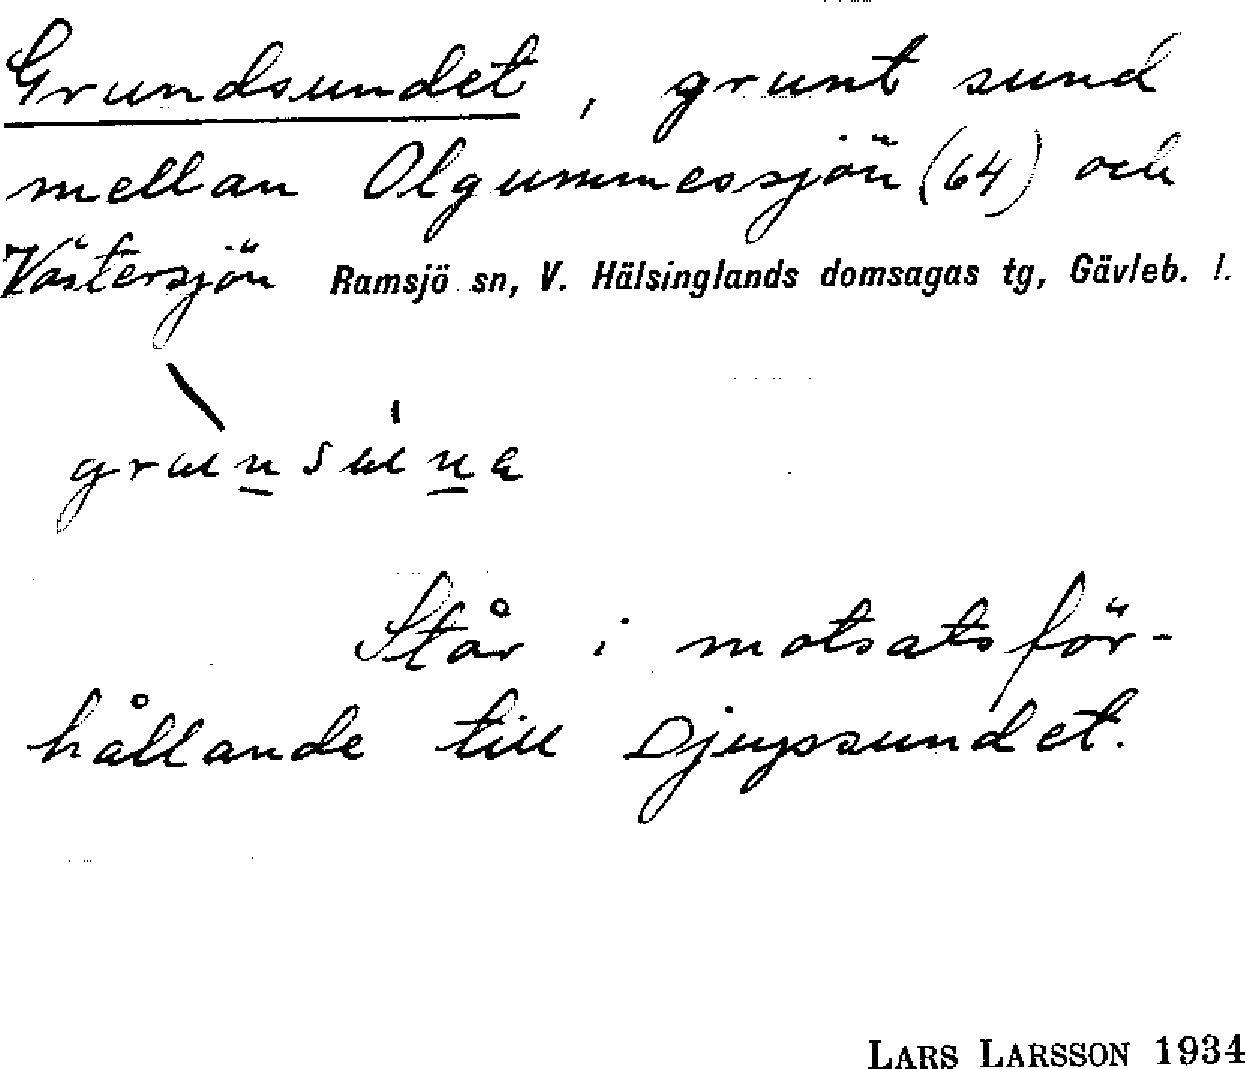 Grundsundet, grunt sund
mellan Olgummessjön (64) och
Västersjön Ramsjö sn, V. Hälsinglands domsagas tg, Gävleb. l.
Står i motsatsför-
hållande till Djupsundet.
LARS LARSSON 1934